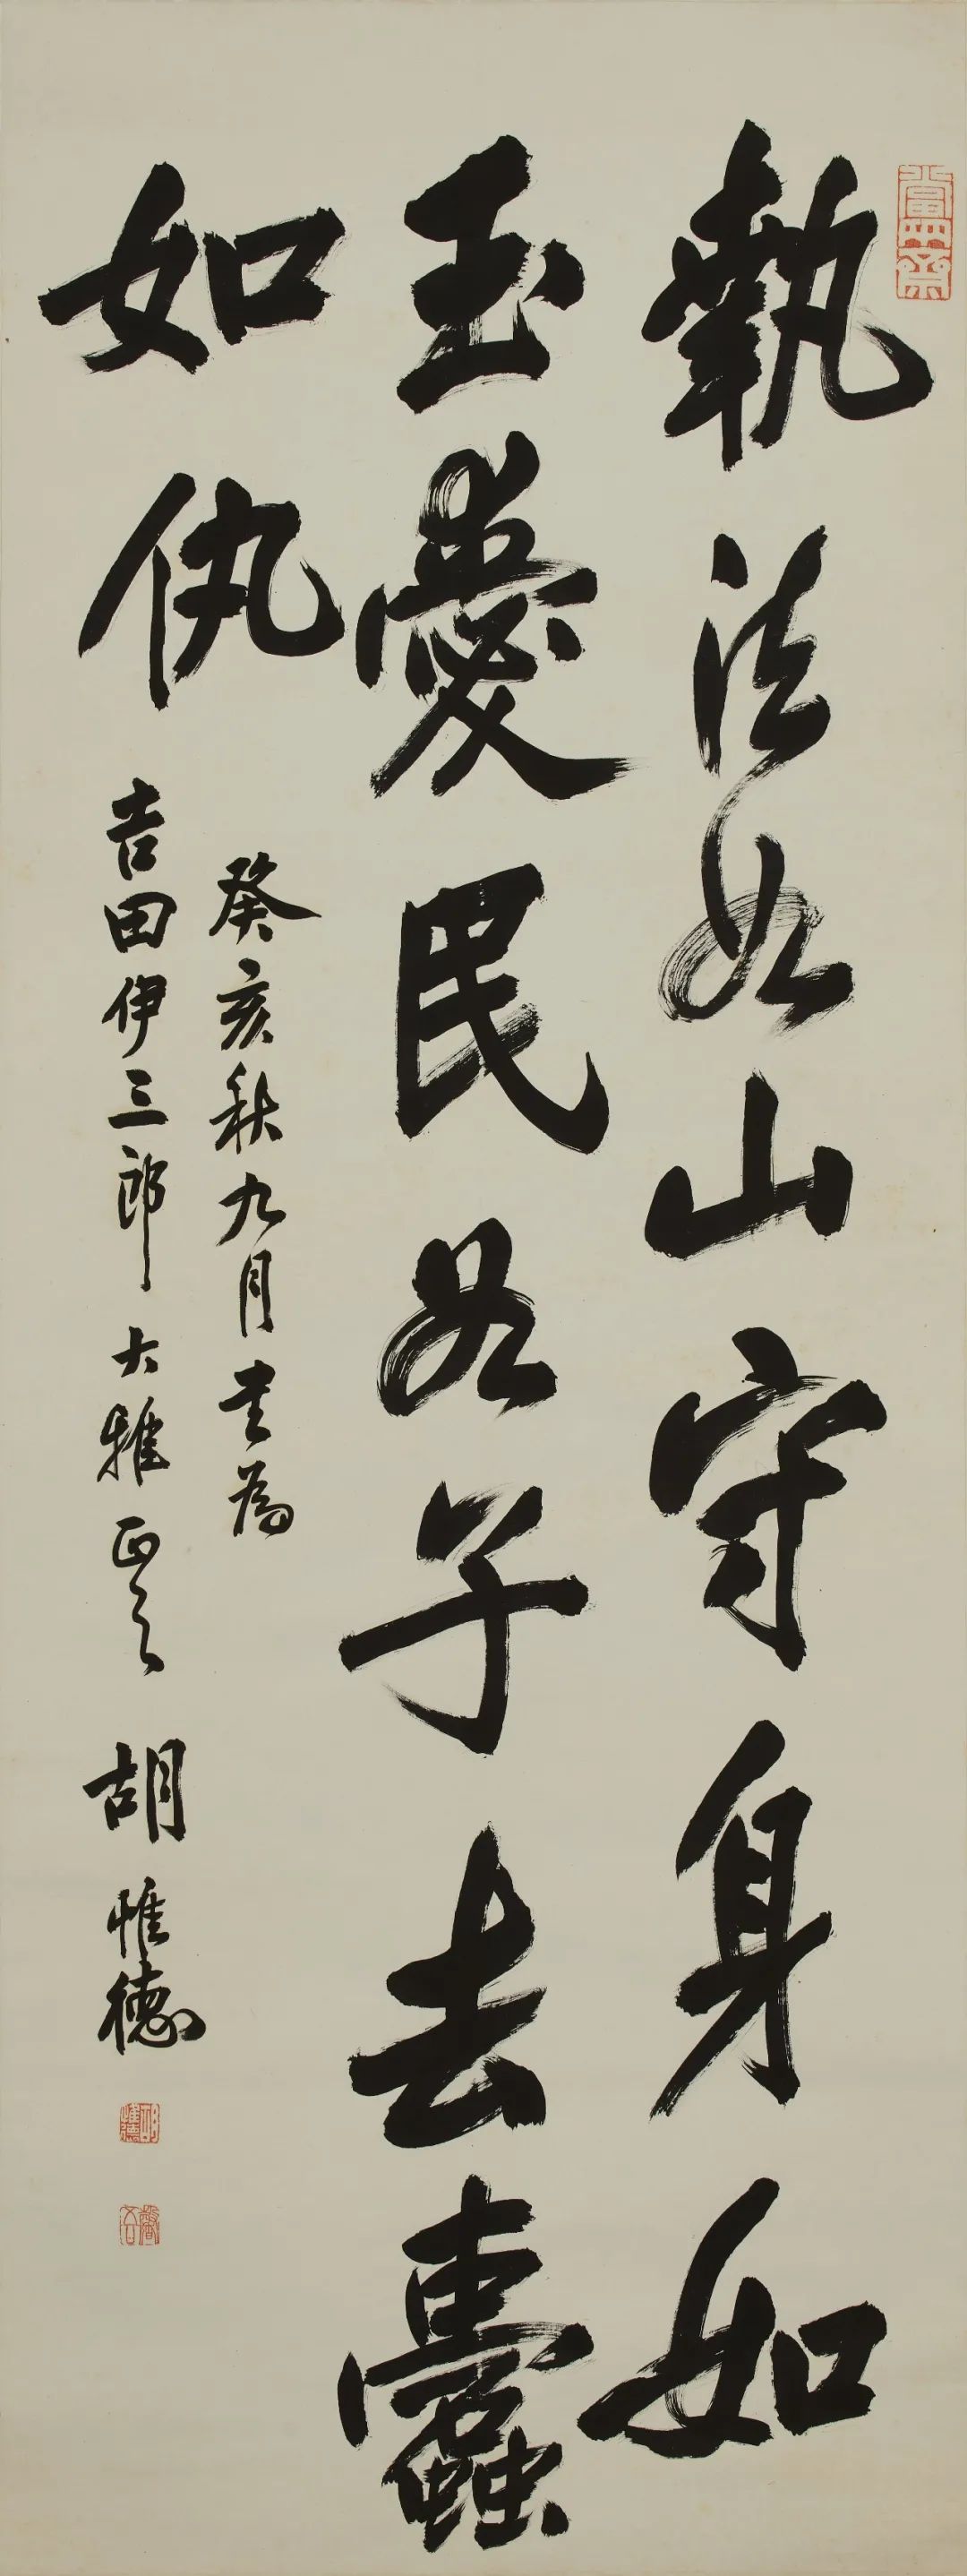 執法如山守身如
玉愛民如子去蠹
如仇
癸亥秋九月書為
吉田伊三郎大雅正之
胡惟德